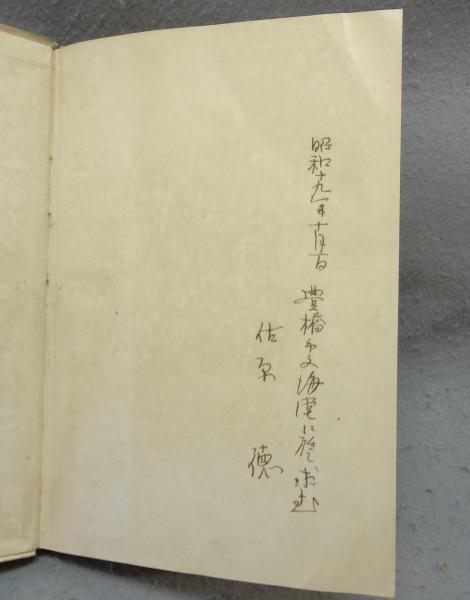 昭和十九年十月一日 豊橋市文海堂に於て求む
佐原 徳